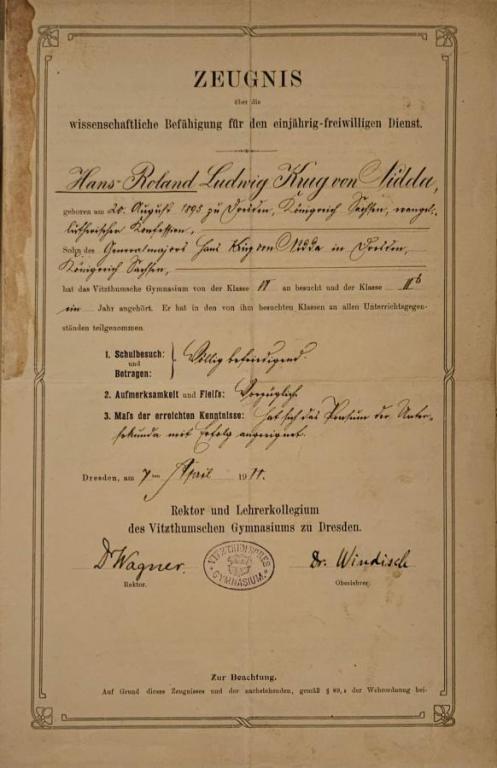 ZEUGNIS
über die
wissenschaftliche Befähigung für den einjährig-freiwilligen Dienst.
Hans Roland Ludwig Krug von Nidda,
geboren am 20. August 1895 zu Dresden, Königreich Sachsen, evangel.-
lutherischer Konfession,
Sohn des Generalmajors Hans Krug von Nidda in Dresden,
Königreich Sachsen,
hat das Vitzthumsche Gymnasium von der Klasse VI an besucht und der Klasse IIb
ein Jahr angehört. Er hat in den von ihm besuchten Klassen an allen Unterrichtsgegen-
ständen teilgenommen
1. Schulbesuch: und Betragen: Völlig befriedigend.
2. Aufmerksamkeit und Fleiß: Vorzüglich.
3. Maß der erreichten Kenntnisse: Hat sich das Pensum der Unter-
sekunda mit Erfolg angeeignet.
Dresden, am 7ten April 1911.
Rektor und Lehrerkollegium
des Vitzthumschen Gymnasiums zu Dresden.
Dr Wagner.
VITZTHUMSCHES GYMNASIUM.
Dr. Windisch
Rektor.
Oberlehrer.
Zur Beachtung.
Auf Grund dieses Zeugnisses und der nachstehenden, gemäß § 89,4 der Wehrordnung bei-